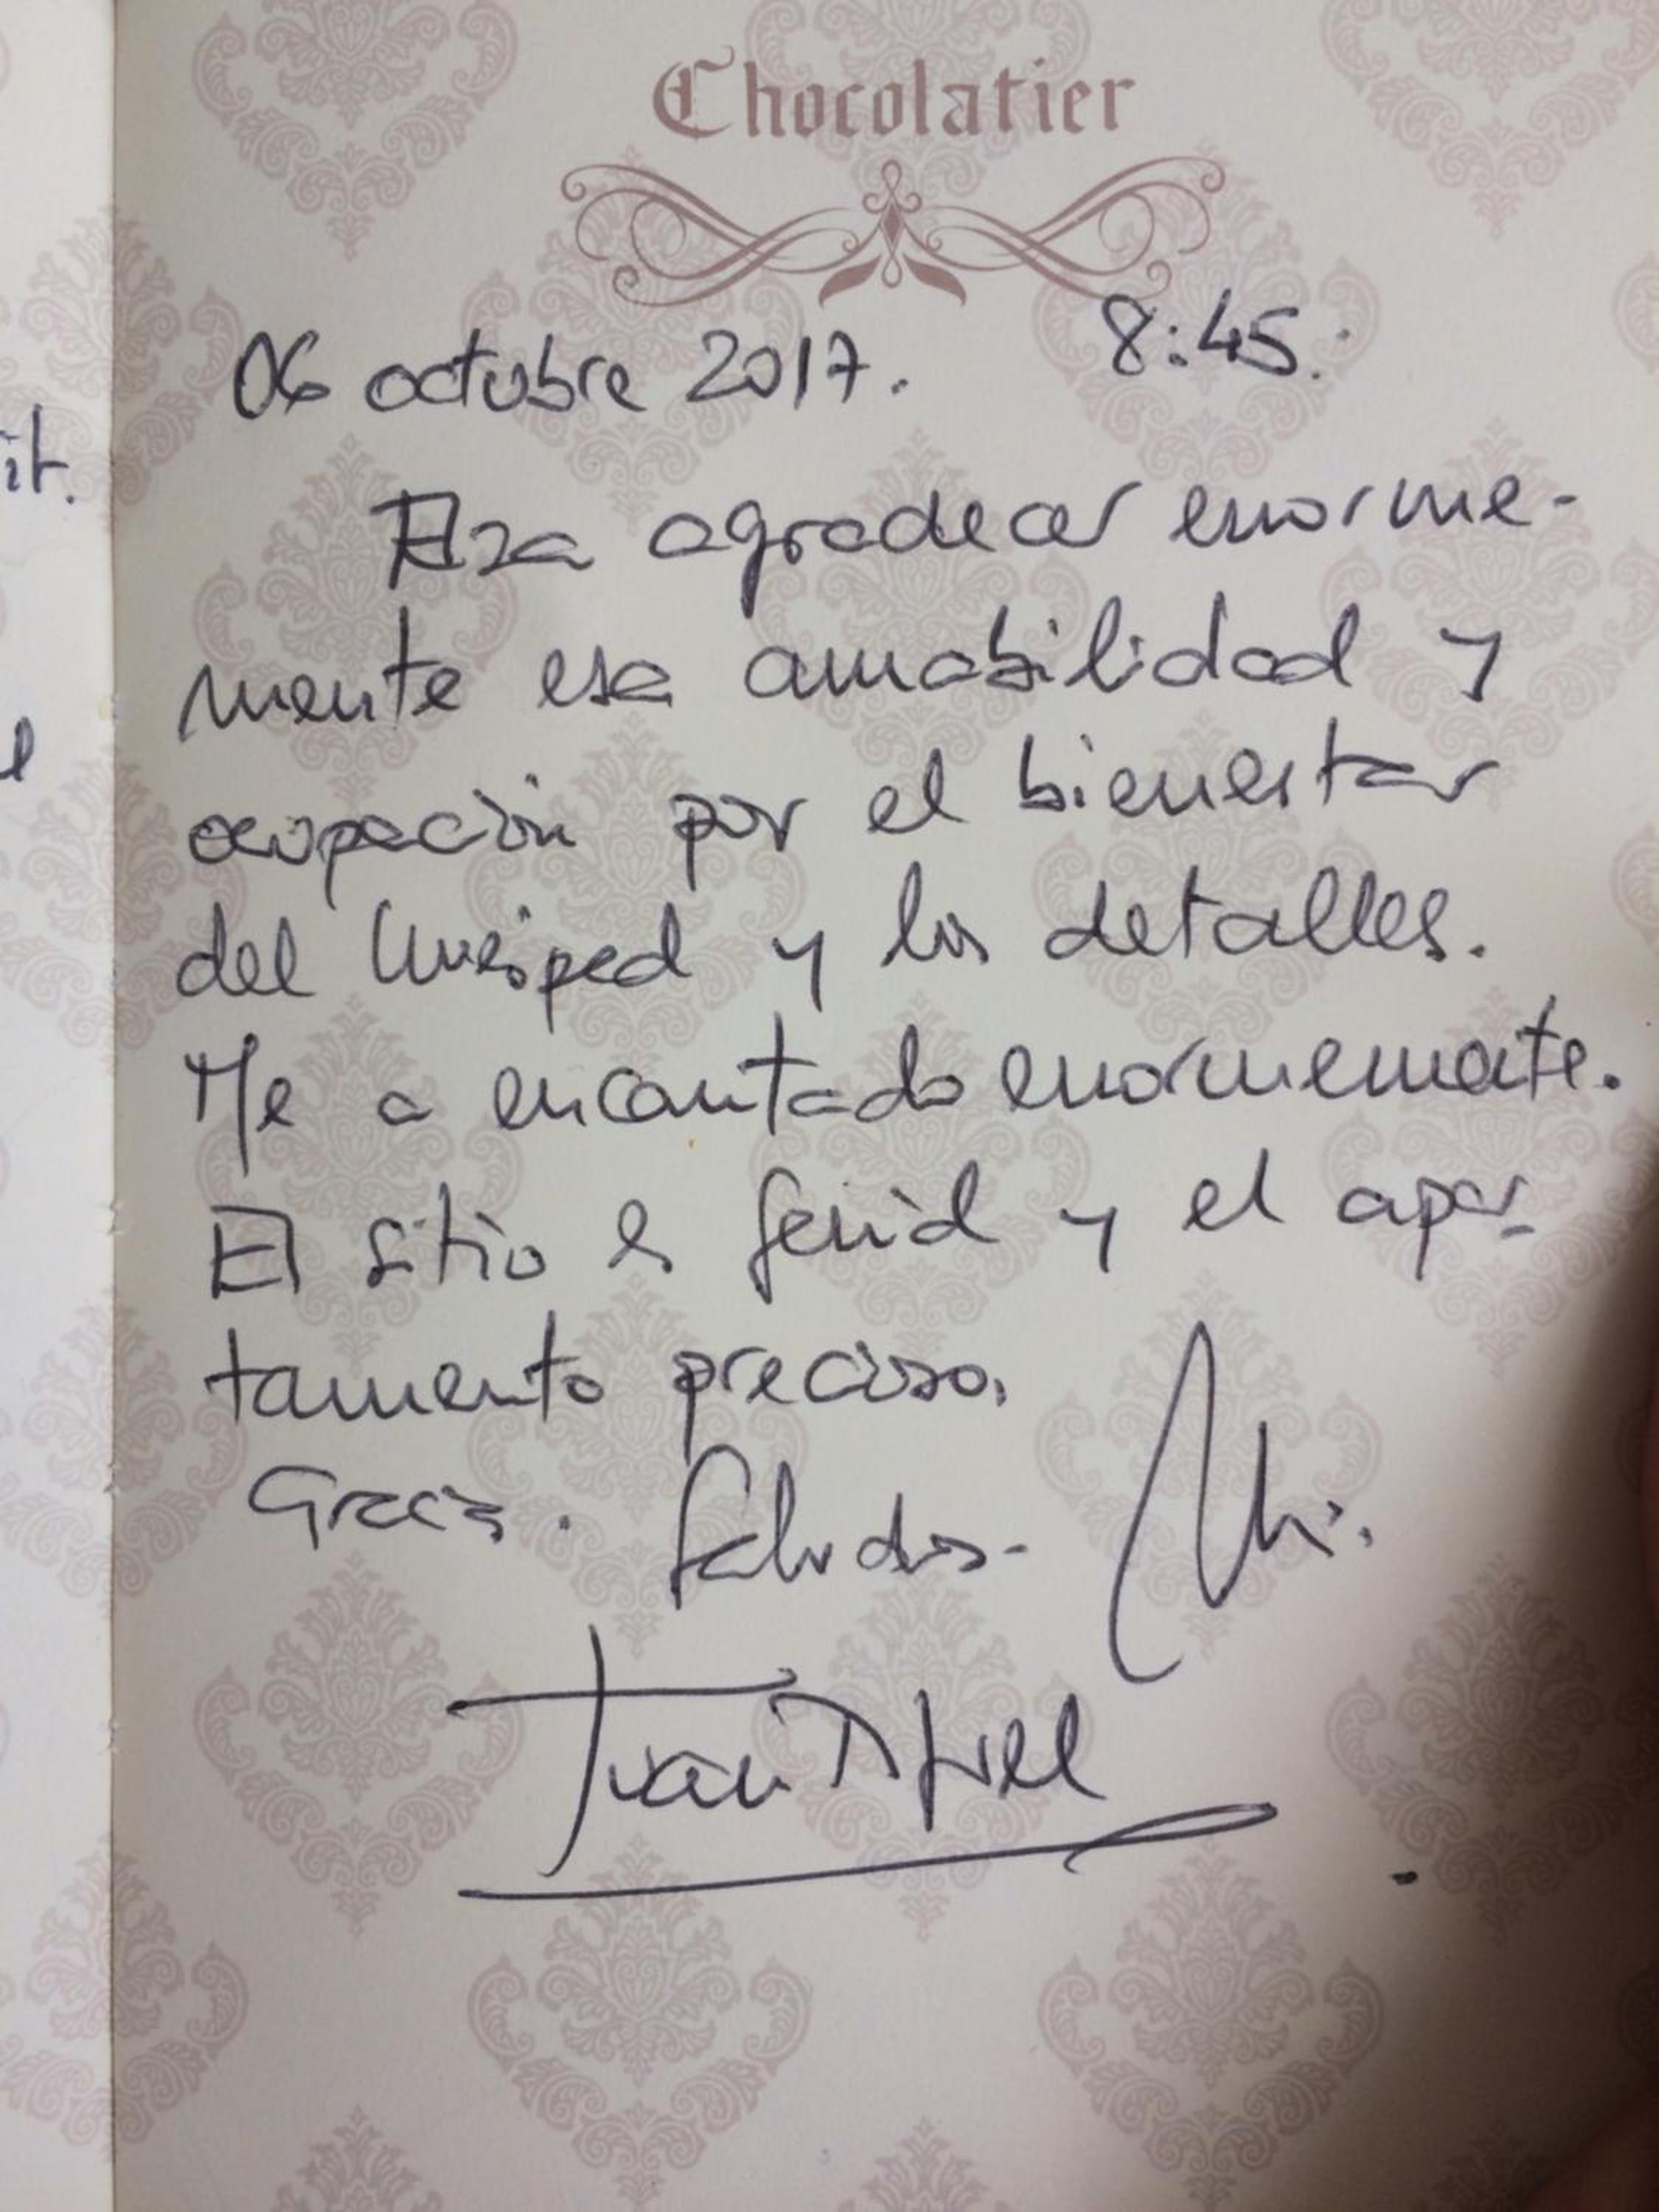 Chocolatier
06 octubre 2017. 8:45.
it.
Elza agradecer enorme-
mente esa amabilidad y
ocupación por el bienestar
del huésped y los detalles.
Me a encantado enormemente.
El sitio es genial y el apar-
tamento precioso.
Gracias. Saludos.
Iván